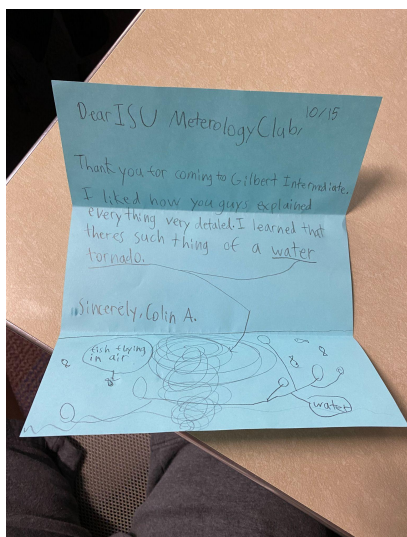 10/15
Dear ISU Meterology Club,
Thank you for coming to Gilbert Intermediate.
I liked how you guys explained
everything very detaled. I learned that
theres such thing of a water
tornado.
Sincerely, Colin A.
fish flying
in air
water